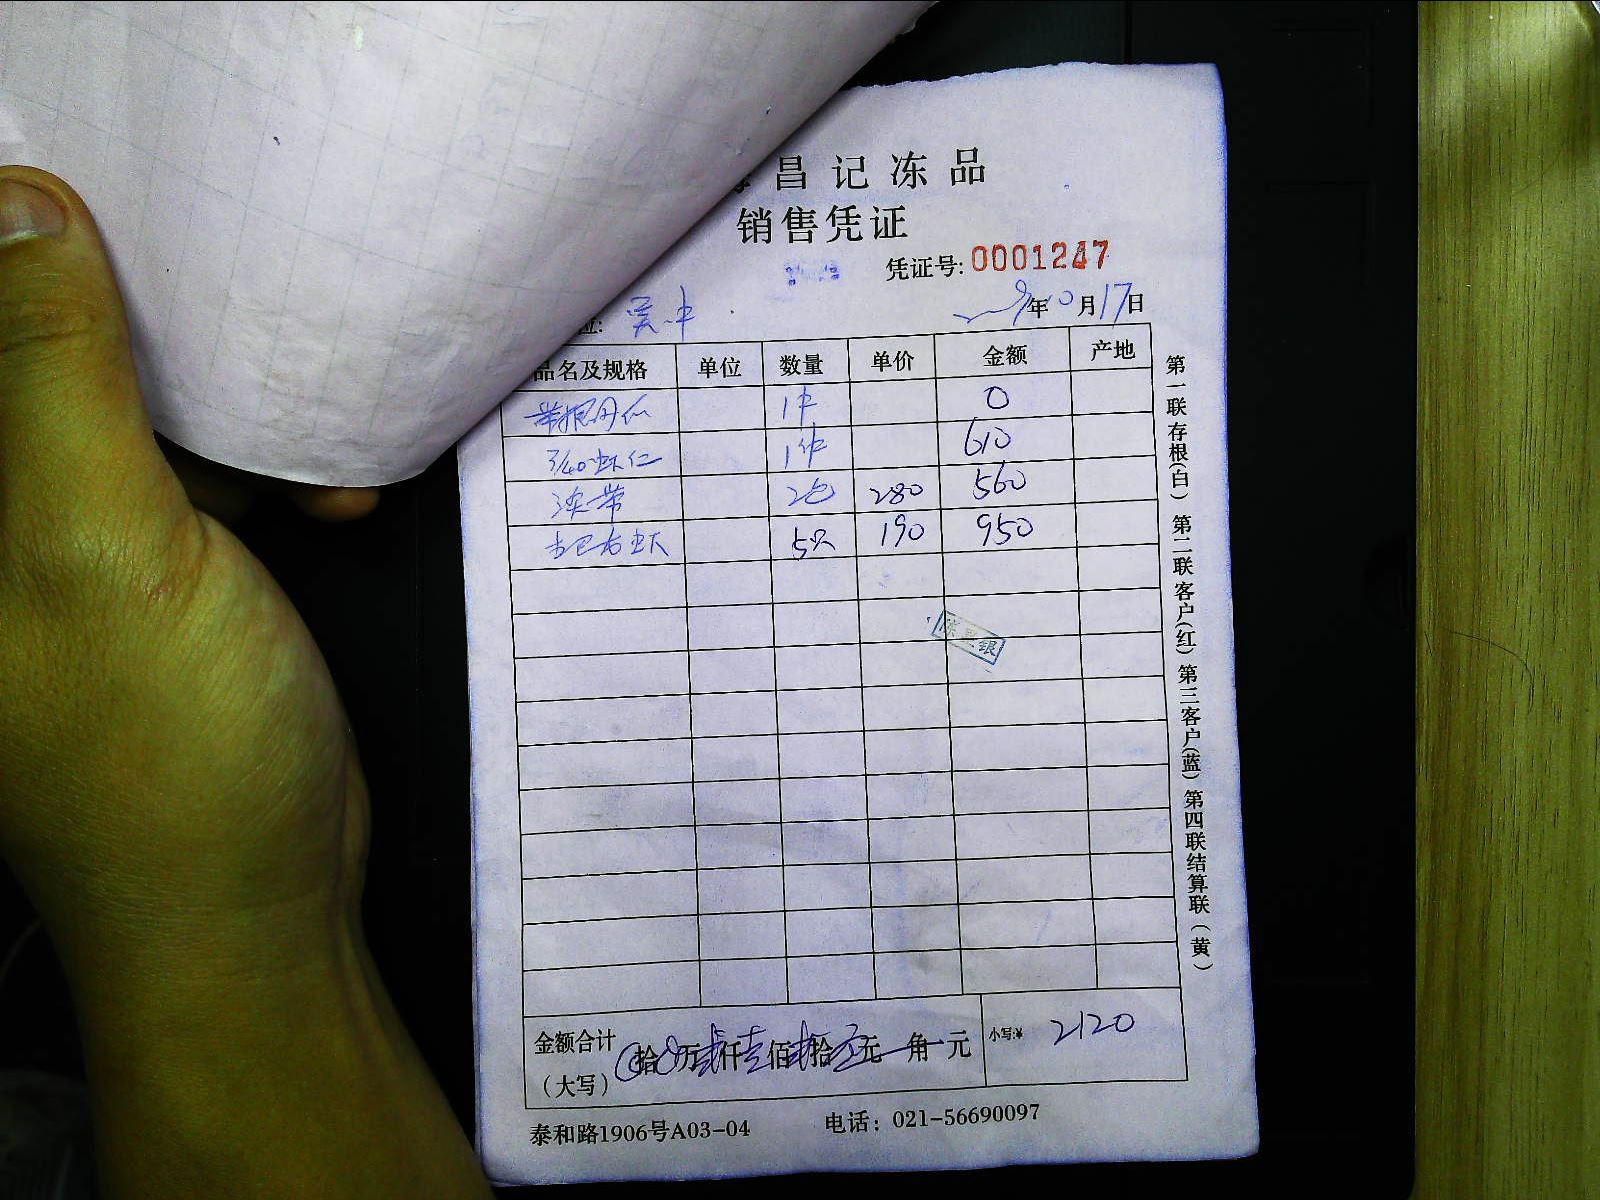 昌记冻品
销售凭证
凭证号: 0001247
吴中
年10月17日
品名及规格 单位 数量 单价 金额 产地
1件 0
31/40虾仁 1件 610
2包 280 560
5只 190 950
银
金额合计（大写） 拾 万贰仟壹佰贰拾元 角 元 小写:¥ 2120
泰和路1906号A03-04 电话：021-56690097
第一联存根(白) 第二联客户(红) 第三客户(蓝) 第四联结算联(黄)